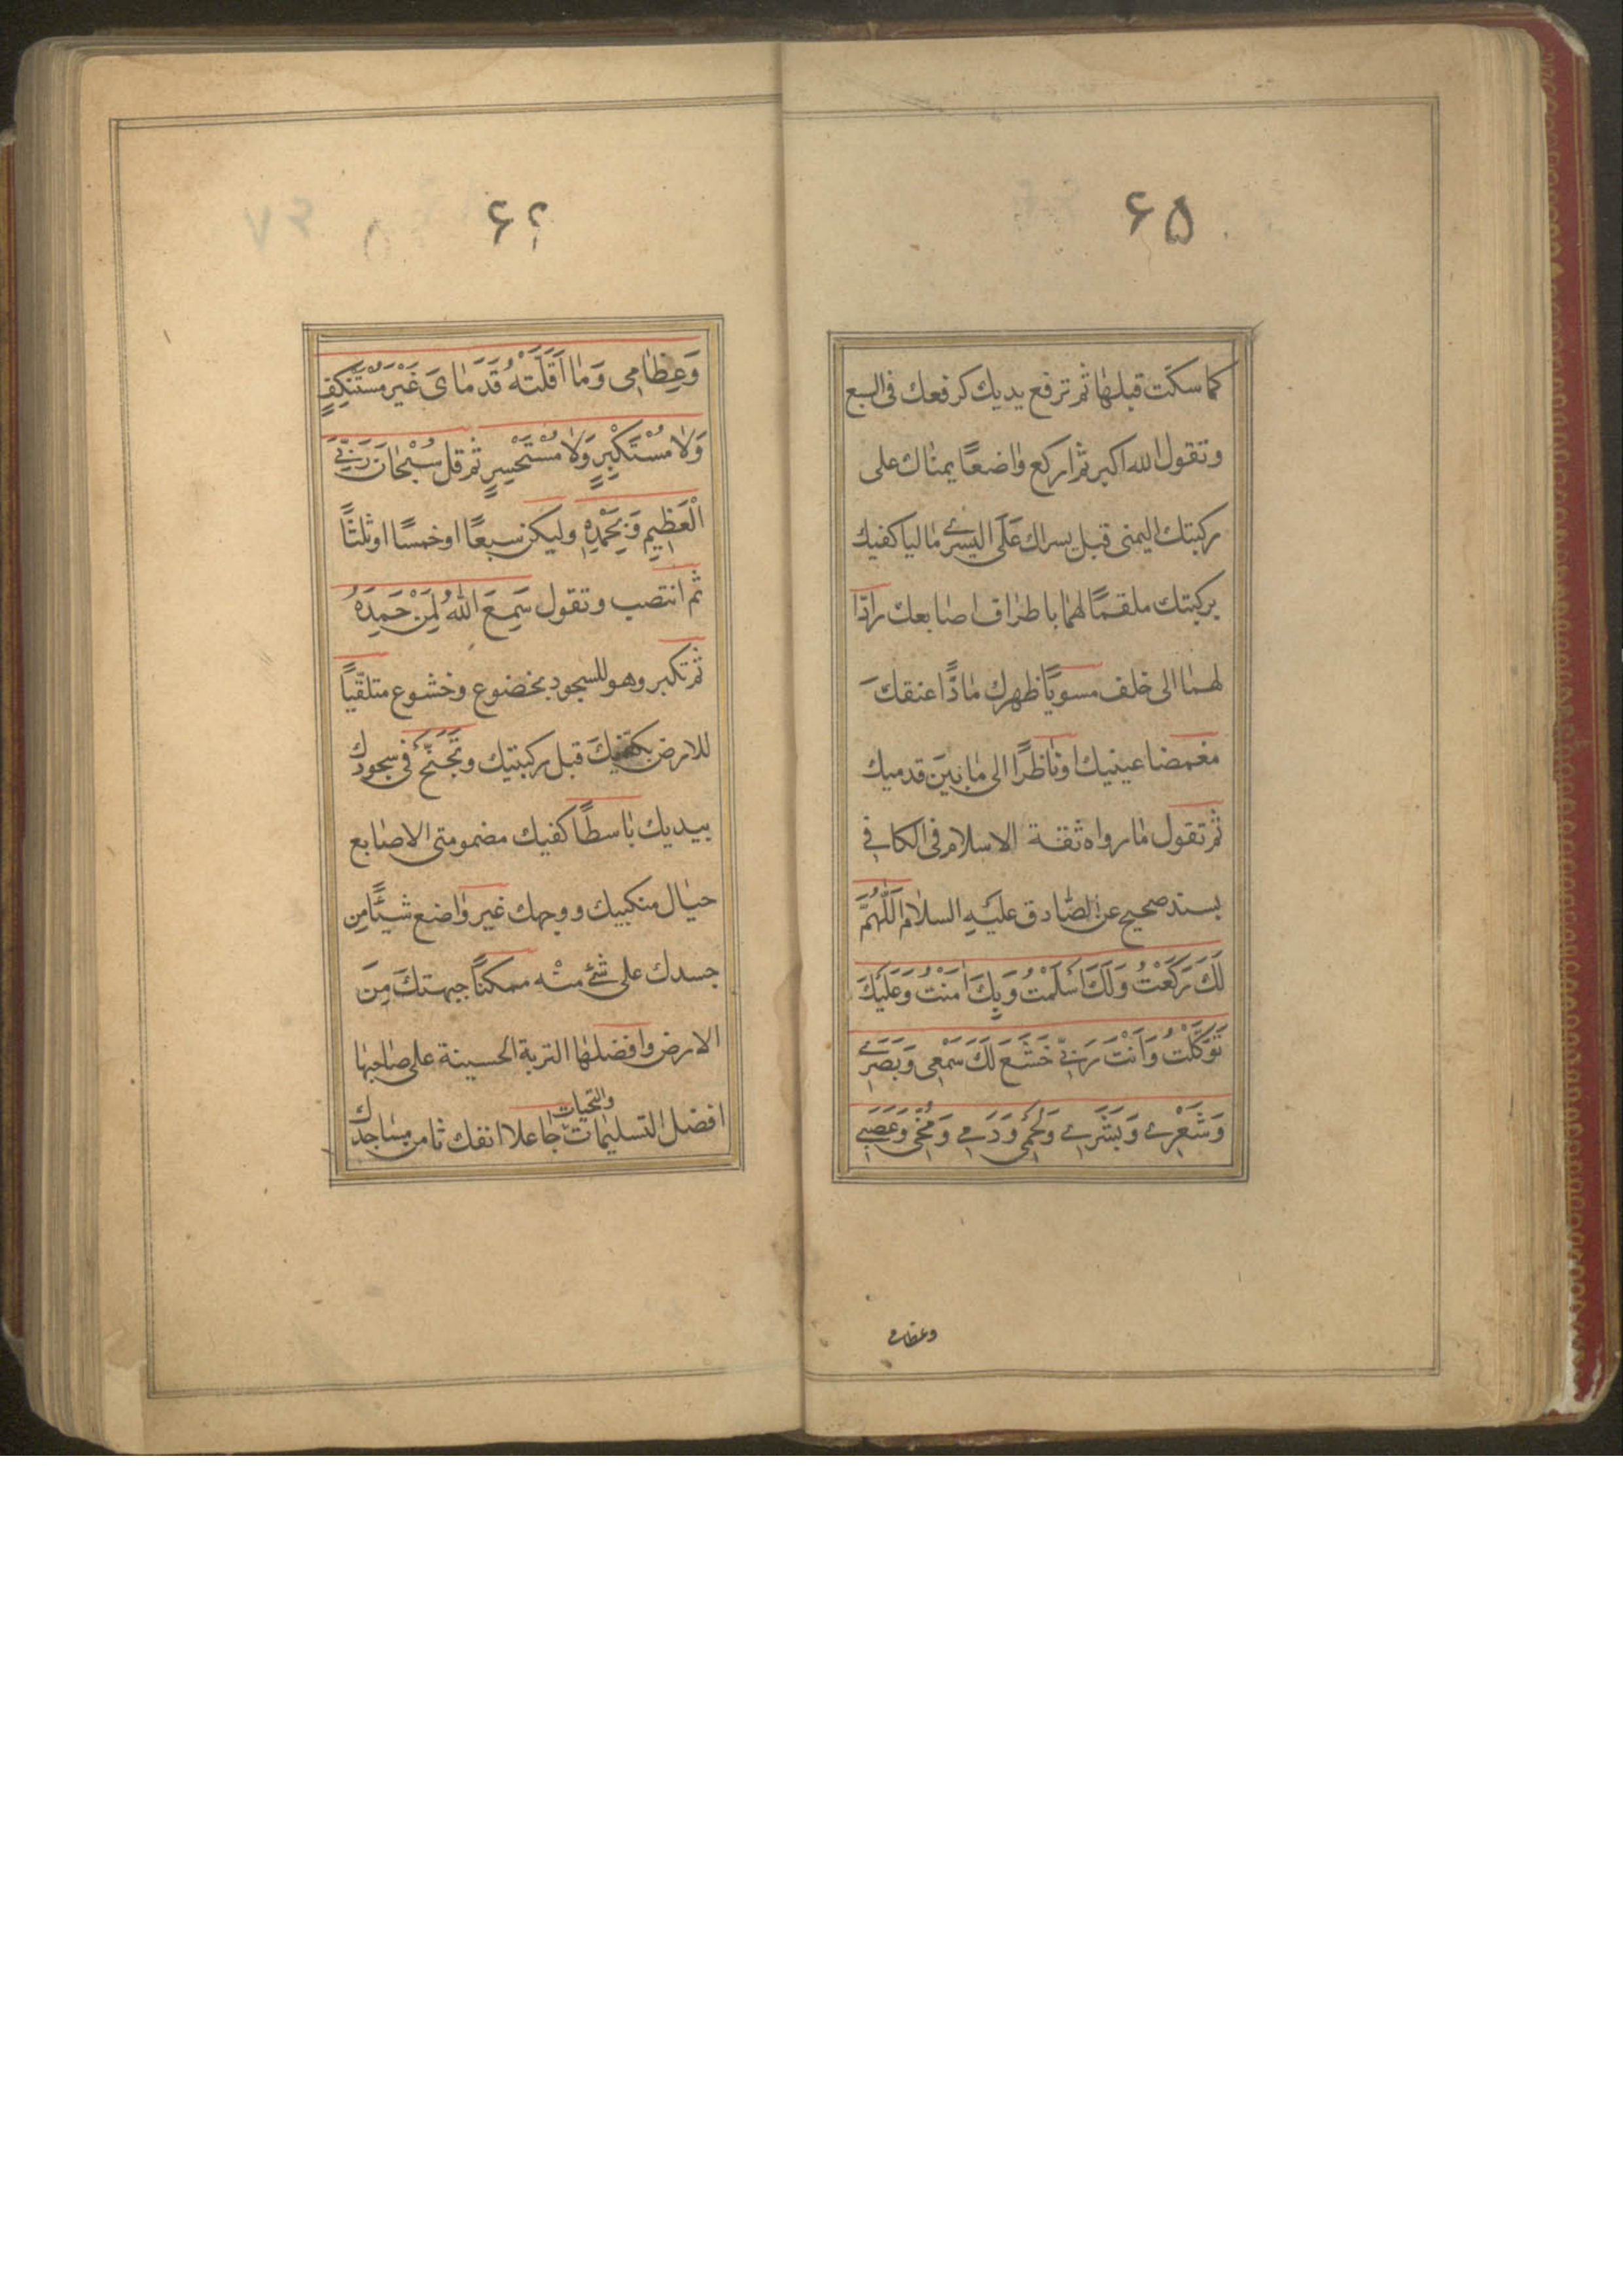 ۶۵
كما سكتّ قبلها ثم ترفع يديك كرفعك فى السبع
وتقول الله اكبر ثم اركع واضعًا يمناك على
ركبتك اليمنى قبل يسراك عَلَى اليسرے ماليا كفيك
بركبتك ملقمًا لهما باطراف اصابعك رادّا
لهما الى خلف مسويًا ظهرك مادًّا عنقك
مغمضا عينيك او ناظرًا الى ما بينَ قدميك
ثم تقول ما رواه ثقة الاسلام فى الكافي
بسند صحيح عن الصّادق عليهِ السلام اَللّهُمَّ
لَكَ رَكَعْتُ وَلَكَ اَسْلَمْتُ وَبِكَ اٰمَنْتُ وَعَلَيْكَ
تَوَكَّلْتُ وَاَنْتَ رَبّي خَشَعَ لَكَ سَمْعى وَبَصَرے
وَشَعْرے وَبَشَرے وَلَحْمى وَدَمے وَمُخّى وَعَصَبے
وعظامے
۶۶
وَعِظامِى وَما اَقَلَّتْهُ قَدَماىَ غَيْرَ مُسْتَنْكِفٍ
وَلا مُسْتَكْبِرٍ وَلا مُسْتَحْسِرٍ ثم قل سُبْحانَ رَبّيَ
الْعَظِيمِ وَبِحَمْدِهِ وليكن سبعًا او خمسًا او ثلثًا
ثم انتصب وتقول سَمِعَ اللهُ لِمَنْ حَمِدَهُ
ثم تكبر وهو للسجود بخضوع وخشوع متلقّيًا
للارض بكفيكَ قبل ركبتيك وتَجَنَّحُ فى سجودك
بيديك باسطًا كفيك مضمومتى الاصابع
حيال منكبيك ووجهك غير واضع شيئًا مِن
جسدك على شئ منْه ممكنًا جبهتكَ مِنَ
الارض وافضلها التربة الحسينة على صاحبها
افضل التسليمات والتحيات جاعلا انفك ثامن مساجدك